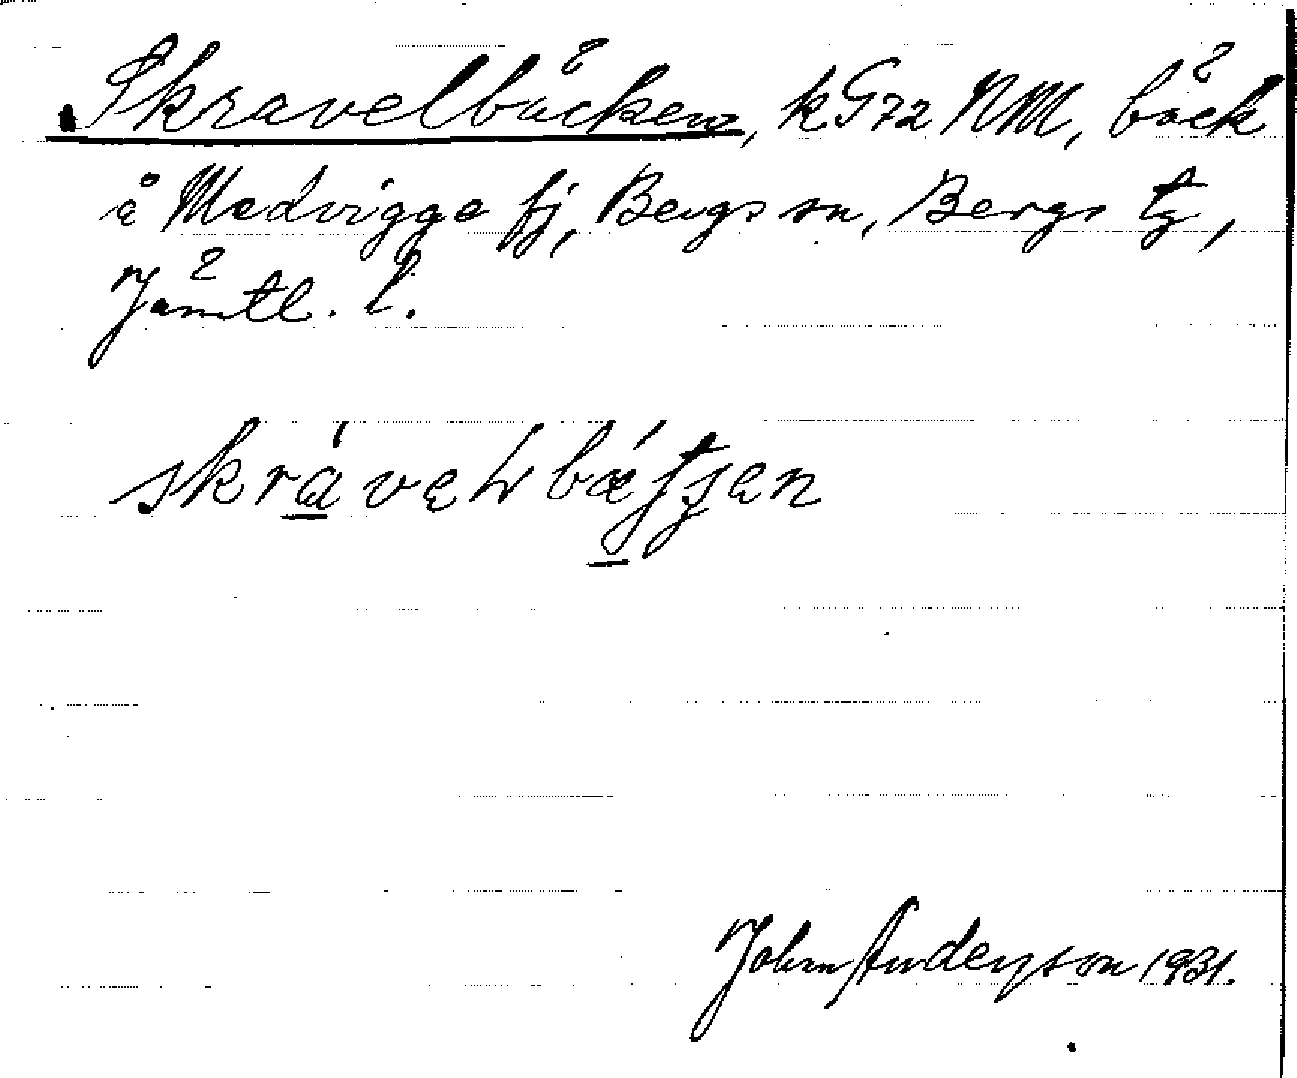 Skravelbäcken, k G72 NM, bäck
å Medvigge fj, Bergs sn, Bergs tg,
Jämtl. l.
John Anderson 1931.